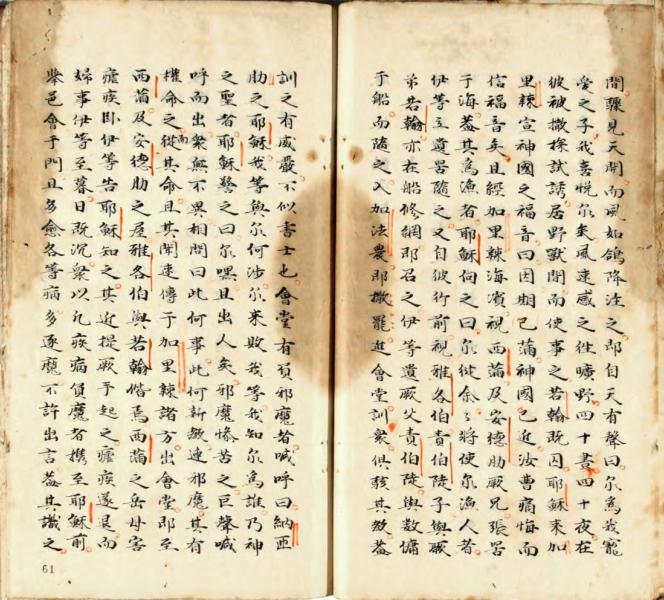 間驟見天開而風如鴿降注之即自天有聲曰尔為我寵
愛之子我喜悅尔矣風速感之徃曠野四十晝四十夜在
彼被撒探試誘居野獸間而使事之若翰既囚耶穌来加
里辣宣神國之福音曰因期已蒲神國已近汝曹痛悔而
信福音矣且經加里辣海濱視西蒲及安德肋厥兄張罟
于海蓋其為漁者耶穌向之曰尔從余々將使尔漁人者
伊等立遺罟隨之又自彼行前視雅各伯責伯陡子與厥
弟若翰亦在船修網即召之伊等遺厥父責伯陡與数傭
于船而隨之入加法農即撒罷進會堂訓衆俱駭其教蓋
訓之有威嚴不似書士也會堂有負邪魔者喊呼曰納匝
肋之耶穌我等與尔何涉尔来敗我等我知尔為誰乃神
之聖者耶穌驚之曰尔嘿且出人矣邪魔慘苦之巨聲喊
呼而出衆無不異相問曰此何事此何新教連邪魔其有
權命之而從其命且其聞速傳于加里辣諸方出會堂即至
西蒲及安德肋之屋雅各伯與若翰偕焉西蒲之岳母害
瘧疾卧伊等告耶穌知之其近提厥手起之瘧疾遂退而
婦事伊等至暮日既沉衆以凡疾病負魔者携至耶穌前
舉邑會于門且多愈各等病多逐魔不許出言蓋其識之
61